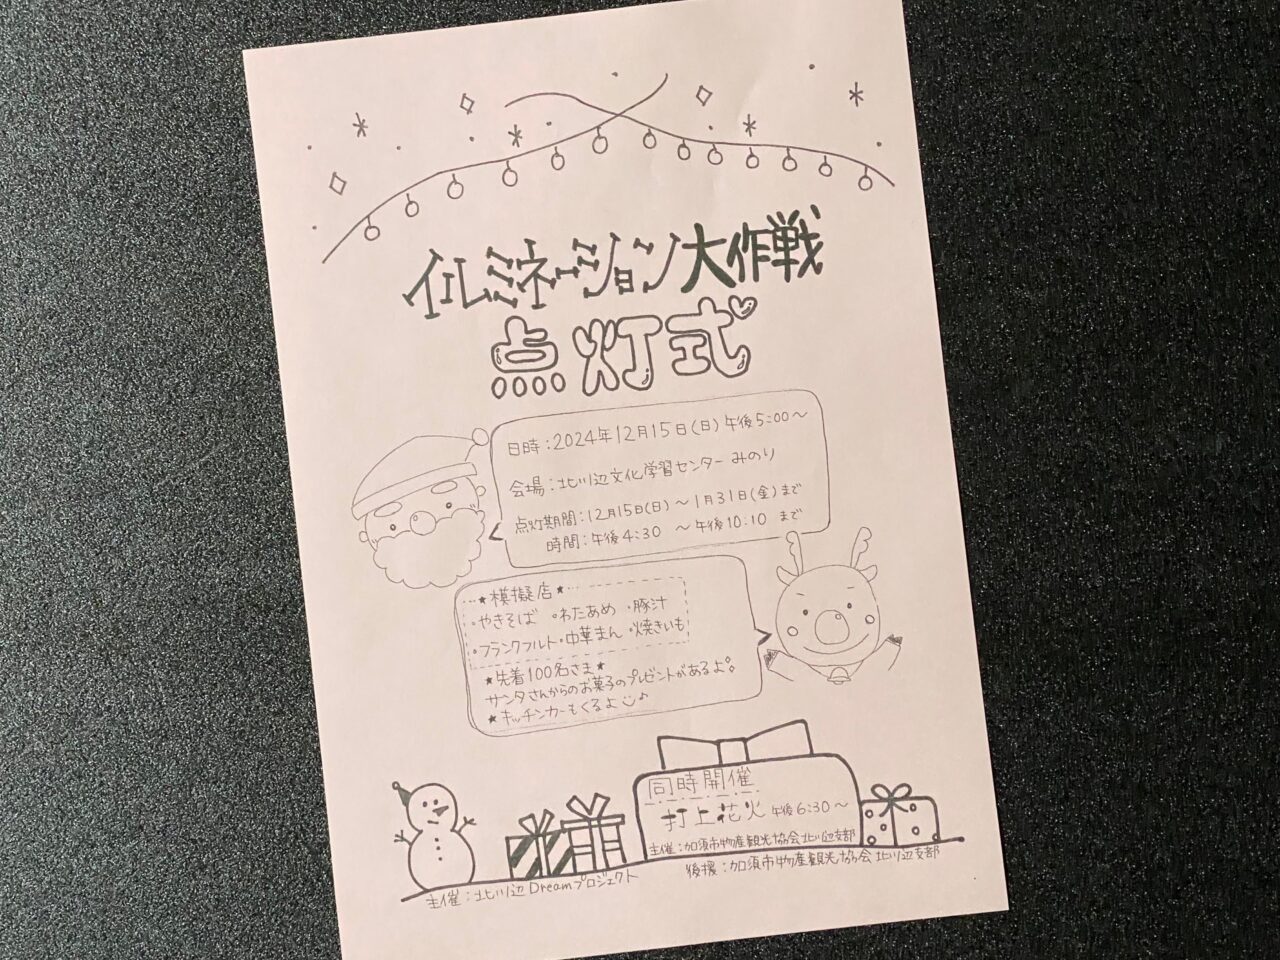 イルミネーション大作戦
点灯式
日時：2024年12月15日(日)午後5:00～
会場：北川辺文化学習センター みのり
点灯期間：12月15日(日)～1月31日(金)まで
時間：午後4:30 ～午後10:10 まで
…★模擬店★…
・やきそば ・わたあめ ・豚汁
・フランクフルト・中華まん・焼きいも
★先着100名さま★
サンタさんからのお菓子のプレゼントがあるよ。
★キッチンカーもくるよ♪
同時開催
打上花火 午後6:30～
主催：加須市物産観光協会北川辺支部
後援：加須市物産観光協会 北川辺支部
主催：北川辺Dreamプロジェクト